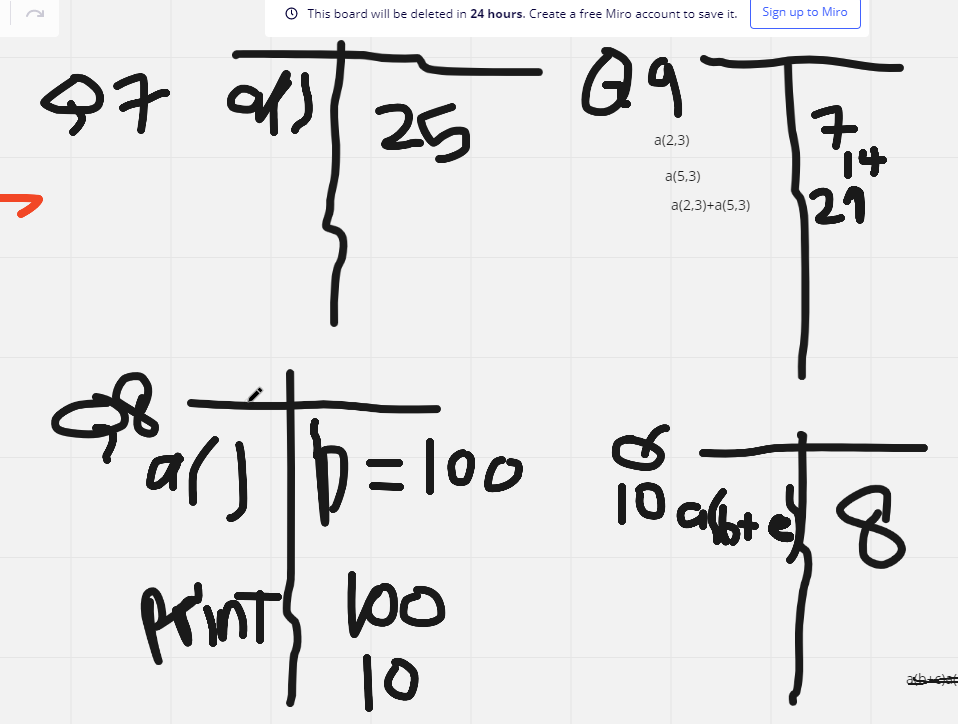 This board will be deleted in 24 hours. Create a free Miro account to save it.
Sign up to Miro
Q7
a()
25
Q9
a(2,3)
a(5,3)
a(2,3)+a(5,3)
7
14
21
Q8
a()
b=100
print
100
10
Q
10
a(b+c)
8
a(b+c)a(